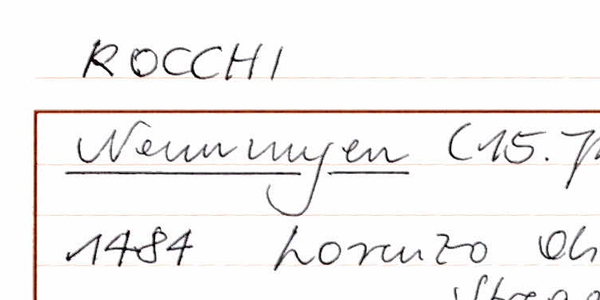 ROCCHI
Nennungen (15. 
1484 Lorenzo